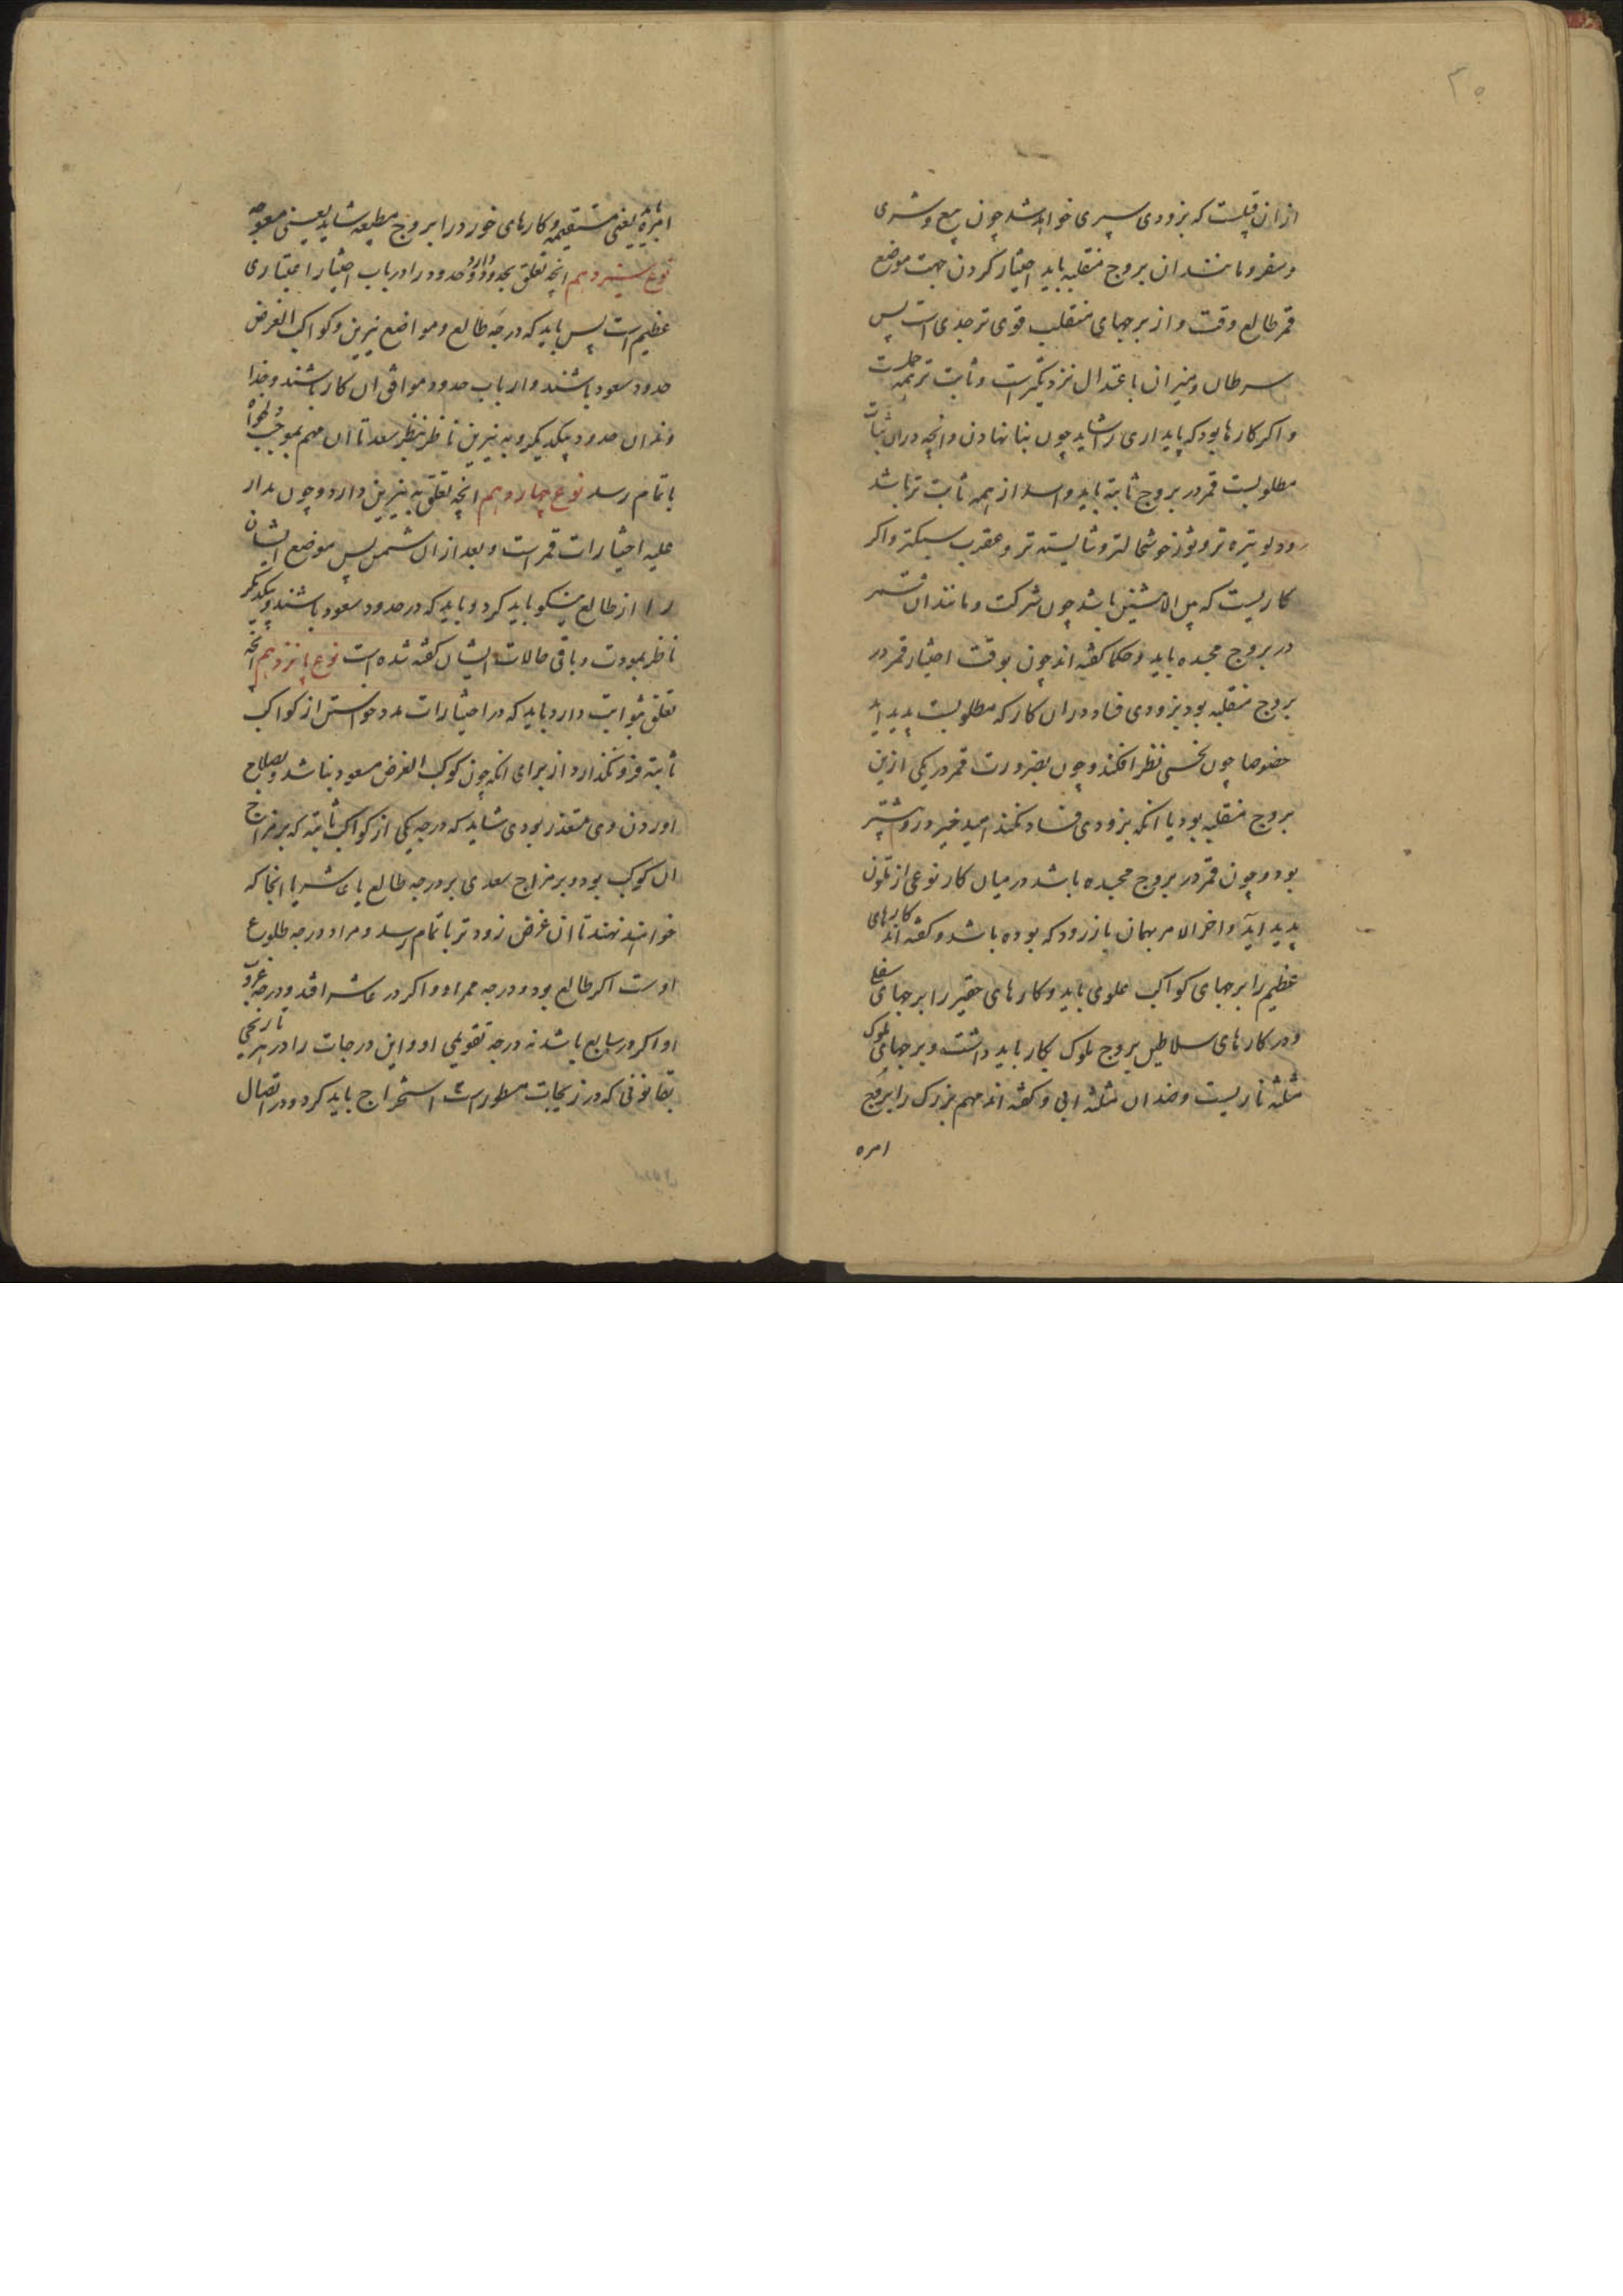 ۲۰
ازان قبیلست که بزودی سپری خواهد شد چون بیع و شری
و سفر و مانند ان بروج منقلبه باید اختیار کردن جهت موضع
قمر طالع وقت و از برجهای منقلب قوی تر جدی است پس
سرطان و میزان باعتدال نزدیکترست و ثابت تر همه حملست
و اکر کارها بود که پایداری را شاید چون بنا نهادن و انچه دران ثبات
مطلوبست قمر در بروج ثابته باید و اسد از همه ثابت تر باشد
و دلو تیره تر و ثور خوشحالتر و شایسته تر و عقرب سبکتر و اکر
کاریست که بین الاثنین باشد چون شرکت و مانند ان قمر
در بروج مجسده باید و حکما کفته اند چون بوقت اختیار قمر در
بروج منقلبه بود بزودی فساد دران کار که مطلوبست پدید اید
خصوصا چون نحسی نظر افکند و چون بضرورت قمر در یکی ازین
بروج منقلبه بود با انکه بزودی فساد کند امید خیر درو بیشتر
بود و چون قمر در بروج مجسده باشد در میان کار نوعی از تلون
پدید اید و اخر الامر بهمان باز رود که بوده باشد و کفته اند کارهای
عظیم را برجهای کواکب علوی باید و کارهای حقیر را برجهای سفلی
و در کارهای سلاطین بروج ملوک بکار باید داشت و برجهای ملوک
مثلثه ناریست و ضد ان مثلثه ابی و کفته اند مهم بزرک را بروج
امره
امره یعنی مستقیمه و کارهای خورد را بروج مطیعه شاید یعنی معوجه
نوع سیزدهم انچه تعلق بحدود دارد و حدود را در باب اختیار اعتباری
عظیم است پس باید که درجه طالع و مواضع نیرین و کواکب الغرض
حدود سعود باشند و ارباب حدود موافق ان کار باشند و خدا
وندان حدود بیکدیکر و به نیرین ناظر بنظر سعد تا ان مهم بموجب دلخواه
باتمام رسد نوع چهاردهم انچه تعلق به نیرین دارد و چون مدار
علیه اختیارات قمر است و بعد ازان شمس پس موضع ایشان
را از طالع نیکو باید کرد و باید که در حدود سعود باشند و بیکدیکر
ناظر بمودت و باقی حالات ایشان کفته شده است نوع پانزدهم انچه
تعلق بثوابت دارد باید که در اختیارات مدد خواستن از کواکب
ثابته فرو نکذارد از برای انکه چون کوکب الغرض مسعود نباشد و بصلاح
اوردن وی متعذر بودی شاید که درجه یکی از کواکب ثابته که بر مزاج
ان کوکب بود و بر مزاج سعدی بر درجه طالع یا عاشر یا انجا که
خواهند نهند تا ان غرض زودتر باتمام رسد و مراد درجه طلوع
اوست اکر طالع بود و درجه ممر او و اکر در عاشر افتد و درجه غروب
او اکر در سابع باشد نه درجه تقویمی او و این درجات را در هر تاریخی
بقانونی که در زیجات مسطورست استخراج باید کرد و در اتصال